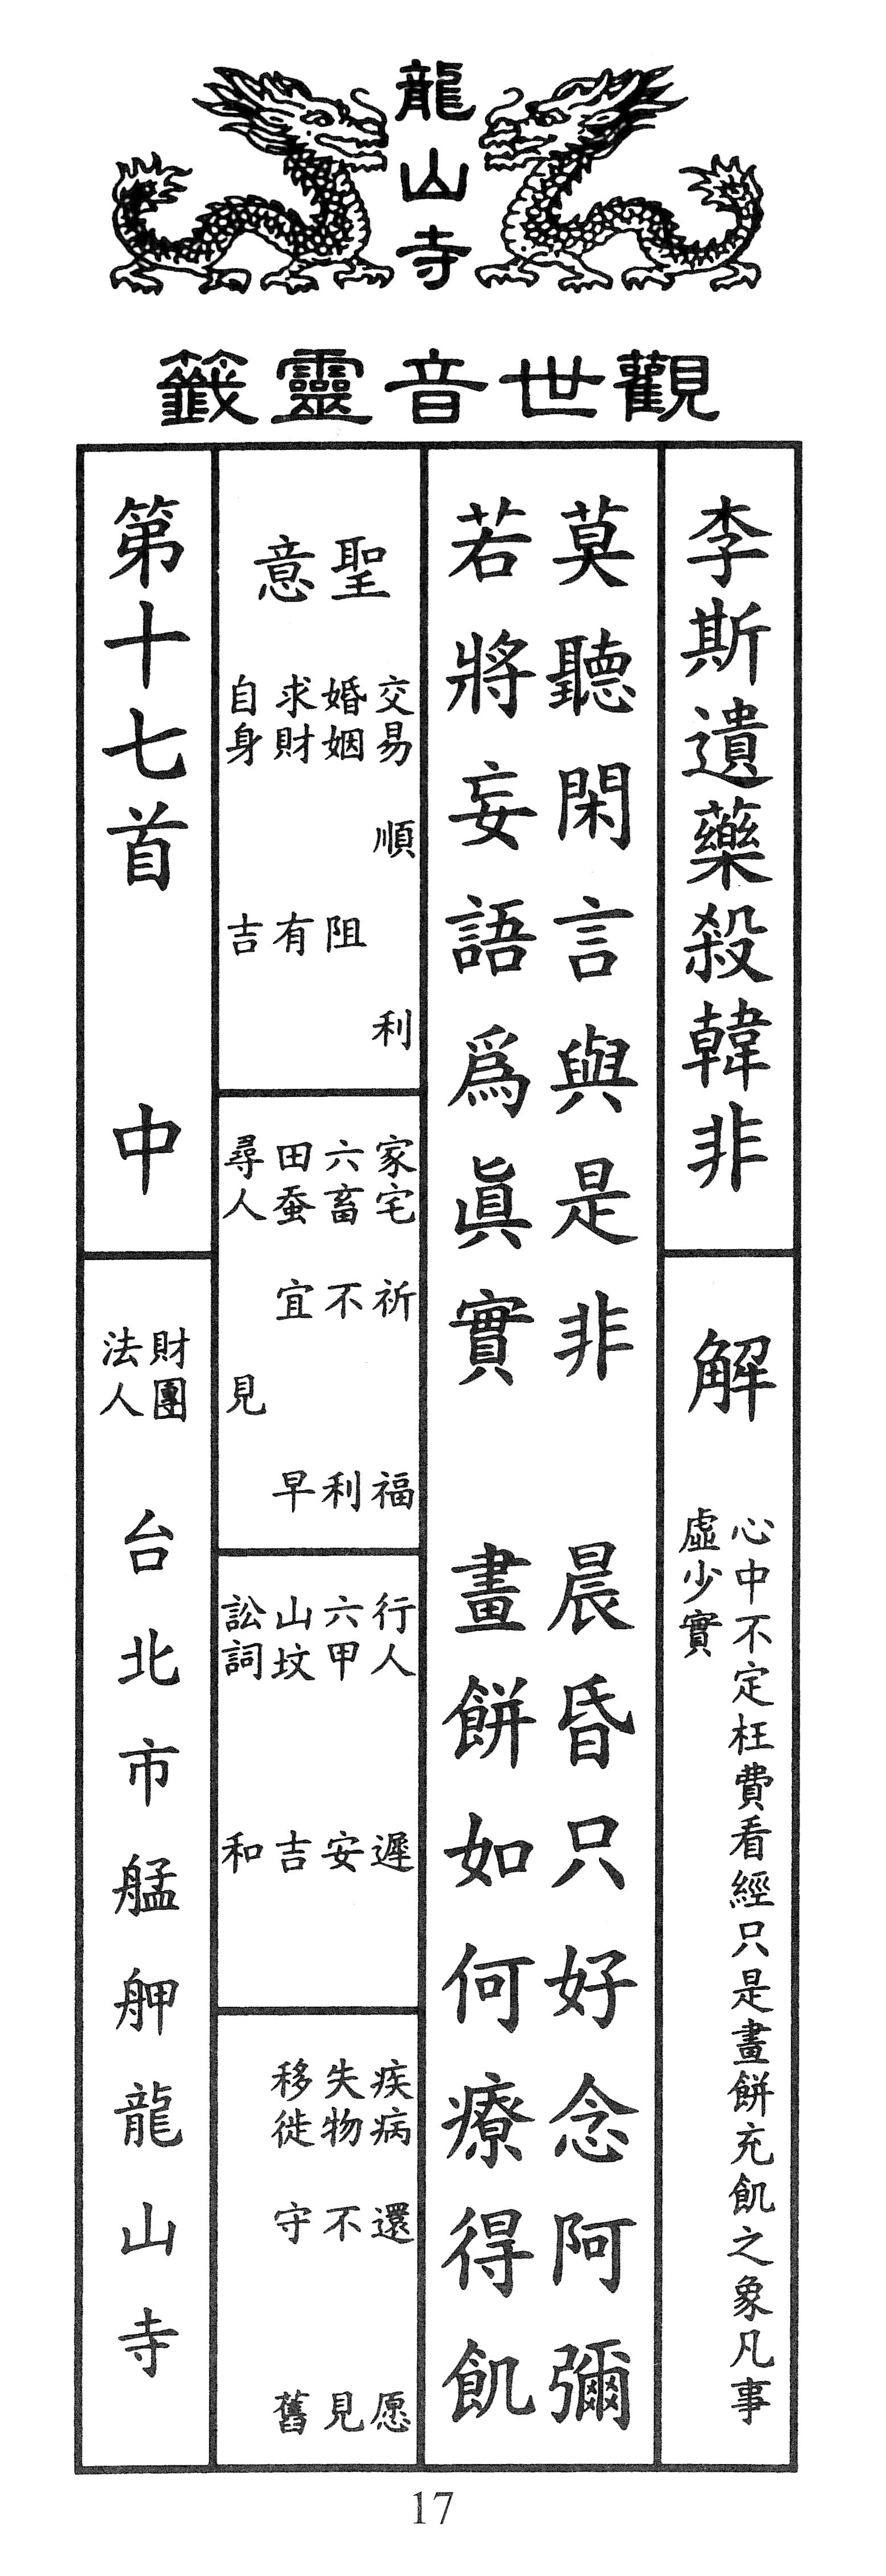 龍山寺
觀世音靈籤
李斯遺藥殺韓非
解
心中不定枉費看經只是畫餅充飢之象凡事
虛少實
莫聽閑言與是非 晨昏只好念阿彌
若將妄語爲眞實 畫餅如何療得飢
聖意
交易 順利
婚姻 阻
求財 有
自身 吉
家宅 祈福
六畜 不利
田蚕 宜早
尋人 見
行人 遲
六甲 安
山坟 吉
訟詞 和
疾病 還愿
失物 不見
移徙 守舊
第十七首 中
財團
法人
台北市艋舺龍山寺
17